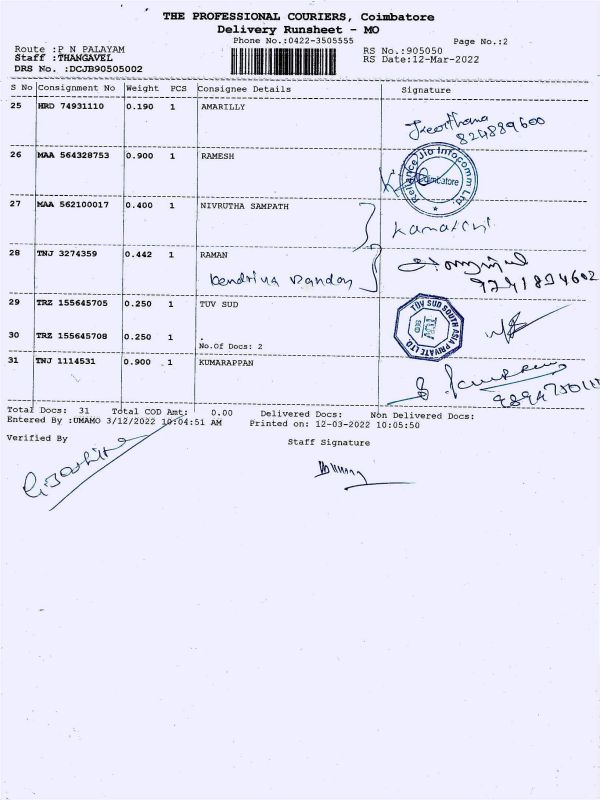 THE PROFESSIONAL COURIERS, Coimbatore
Delivery Runsheet - MO
Phone No.:0422-3505555
Page No.:2
Route :P N PALAYAM
RS No.:905050
Staff :THANGAVEL
RS Date:12-Mar-2022
DRS No. :DCJB90505002
S No Consignment No Weight PCS Consignee Details Signature
25 HRD 74931110 0.190 1 AMARILLY
Keerthana
824889600
26 MAA 564328753 0.900 1 RAMESH
Reliance Jio Infocomm Ltd
Coimbatore
27 MAA 562100017 0.400 1 NIVRUTHA SAMPATH
28 TNJ 3274359 0.442 1 RAMAN
9741894602
29 TRZ 155645705 0.250 1 TUV SUD
TÜV SUD SOUTH ASIA PRIVATE LTD
30 TRZ 155645708 0.250 1 .
No.Of Docs: 2
31 TNJ 1114531 0.900 1 KUMARAPPAN
Total Docs: 31 Total COD Amt: 0.00 Delivered Docs: Non Delivered Docs:
Entered By :UMAMO 3/12/2022 10:04:51 AM Printed on: 12-03-2022 10:05:50
Verified By
Staff Signature